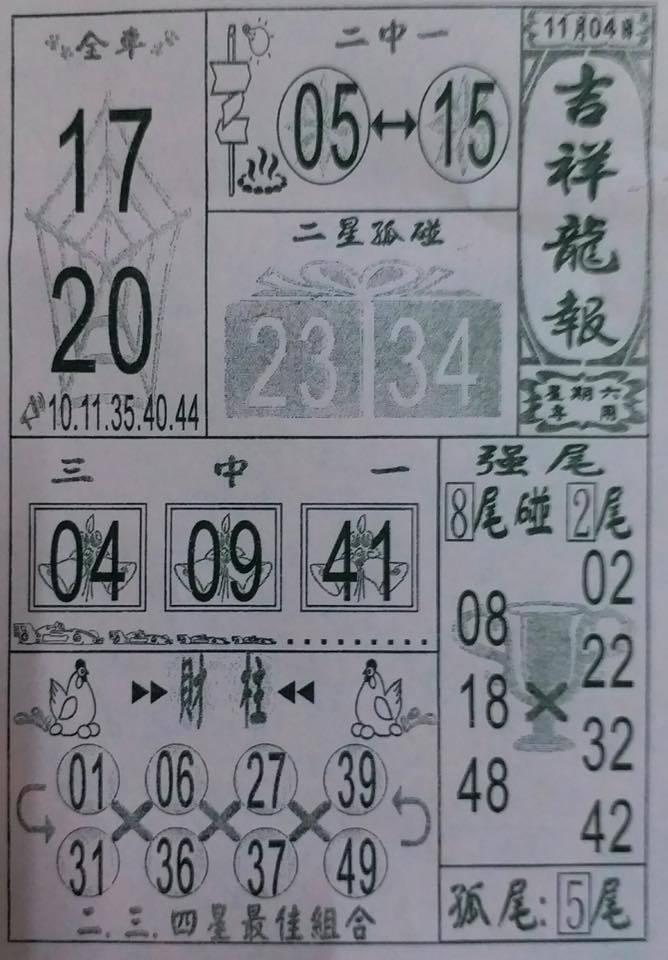 11月04日
吉祥龍報
星期六
專用
全車
17
20
10.11.35.40.44
二中一
05 ↔ 15
二星孤碰
23 34
三中一
04 09 41
强尾
8尾碰2尾
08 18 48
×
02 22 32 42
孤尾:5尾
財柱
01 06 27 39
31 36 37 49
二.三.四星最佳組合